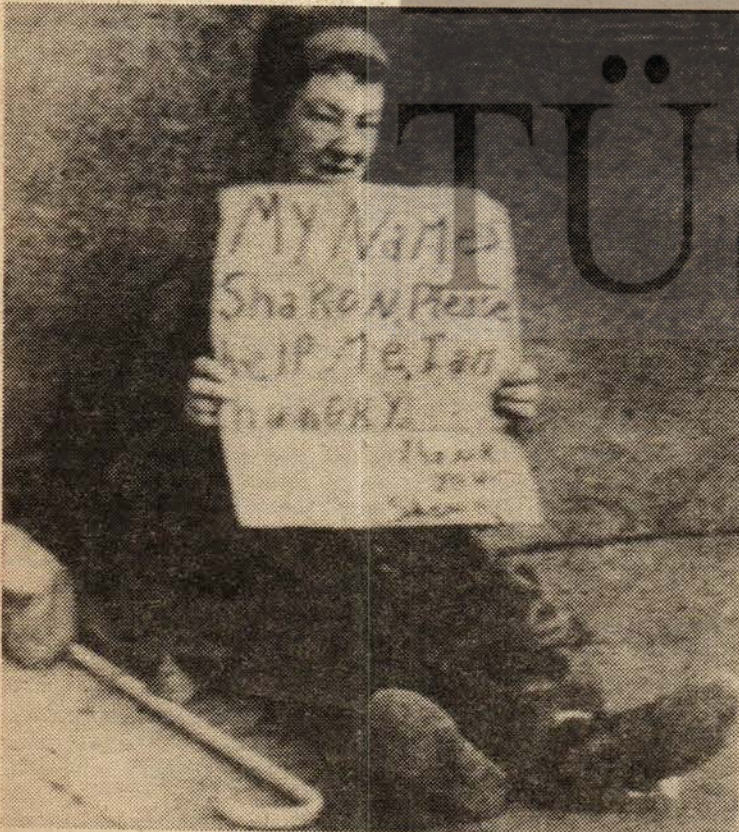 TÜ
My NaMes
ShaRoN, Please
help Me, I am
hunGRY.
Thank
you
Sharon